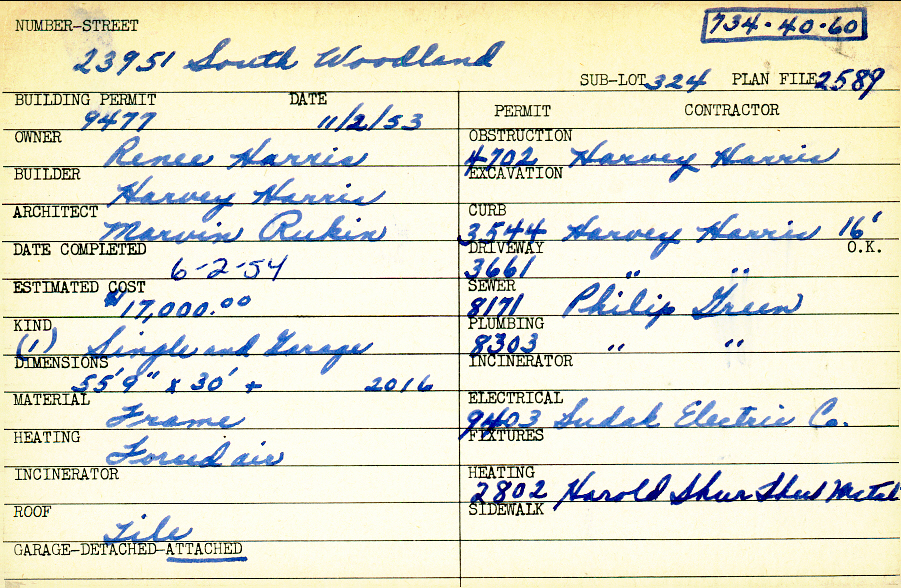 NUMBER-STREET
734-40-60
23951 South Woodland
SUB-LOT 324 PLAN FILE 2589
BUILDING PERMIT DATE
9477 11/2/53
OWNER
Renee Harris
BUILDER
Harvey Harris
ARCHITECT
Marvin Rukin
DATE COMPLETED
6-2-54
ESTIMATED COST
$17,000.00
KIND
(1) Single and Garage
DIMENSIONS
55'9" x 30' + 2016
MATERIAL
Frame
HEATING
Forced air
INCINERATOR
ROOF
Tile
GARAGE-DETACHED-ATTACHED
PERMIT CONTRACTOR
OBSTRUCTION
4702 Harvey Harris
EXCAVATION
CURB
3544 Harvey Harris 16'
DRIVEWAY O.K.
3661 " "
SEWER
8171 Philip Green
PLUMBING
8303 " "
INCINERATOR
ELECTRICAL
9403 Sudak Electric Co.
FIXTURES
HEATING
2802 Harold Shur Sheet Metal
SIDEWALK